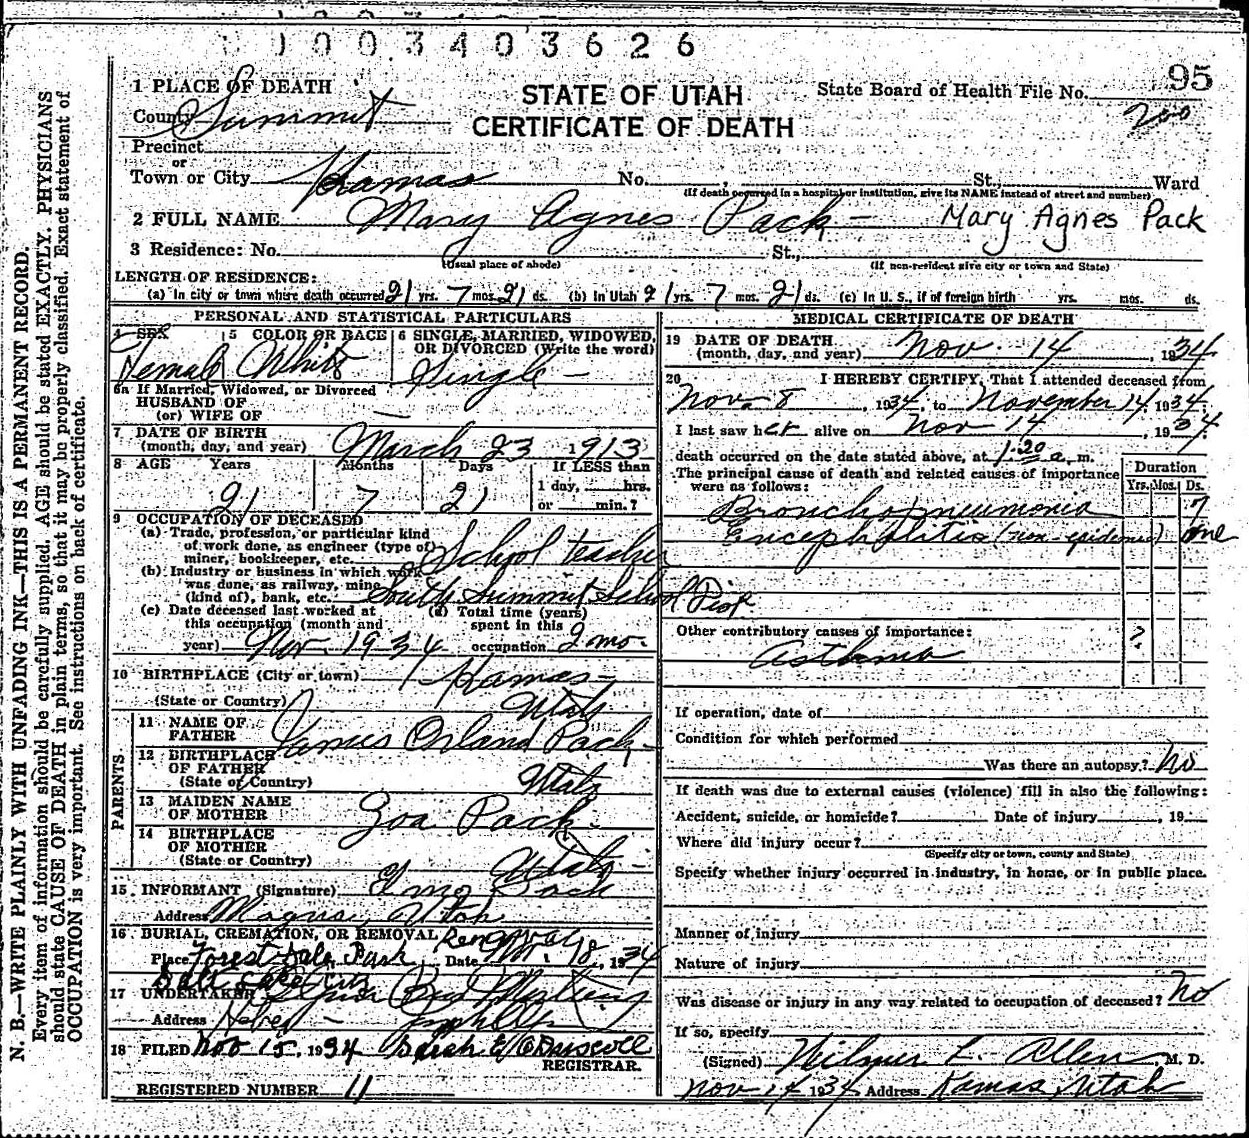 1 0 0 3 4 0 3 6 2 6
95
STATE OF UTAH
CERTIFICATE OF DEATH
State Board of Health File No.
200
1 PLACE OF DEATH
County Summit
Precinct
or
Town or City Kamas No. , St., Ward
(If death occurred in a hospital or institution, give its NAME instead of street and number)
2 FULL NAME Mary Agnes Pack — Mary Agnes Pack
3 Residence: No. St.,
(Usual place of abode) (If non-resident give city or town and State)
LENGTH OF RESIDENCE:
(a) In city or town where death occurred 21 yrs. 7 mos. 21 ds. (b) In Utah 21 yrs. 7 mos. 21 ds. (c) In U. S., if of foreign birth yrs. mos. ds.
PERSONAL AND STATISTICAL PARTICULARS
4 SEX Female
5 COLOR OR RACE White
6 SINGLE, MARRIED, WIDOWED, OR DIVORCED (Write the word) Single —
6a If Married, Widowed, or Divorced
HUSBAND OF
(or) WIFE OF —
7 DATE OF BIRTH
(month, day, and year) March 23 1913
8 AGE Years Months Days If LESS than
1 day, hrs.
21 7 21 or min.?
9 OCCUPATION OF DECEASED
(a) Trade, profession, or particular kind
of work done, as engineer (type of)
miner, bookkeeper, etc. School teacher
(b) Industry or business in which work
was done, as railway, mine
(kind of), bank, etc. South Summit School Dist
(c) Date deceased last worked at
this occupation (month and
year) Nov. 1934
(d) Total time (years)
spent in this
occupation 2 mo.
10 BIRTHPLACE (City or town) Kamas —
(State or Country) Utah
PARENTS
11 NAME OF
FATHER James Orland Pack —
12 BIRTHPLACE
OF FATHER
(State or Country) Utah
13 MAIDEN NAME
OF MOTHER Zoa Pack —
14 BIRTHPLACE
OF MOTHER
(State or Country) Utah —
15 INFORMANT (Signature) Elmo Pack
Address Magna, Utah
16 BURIAL, CREMATION, OR REMOVAL Removal
Place Forest Dale Park Date Nov. 18, 1934
Salt Lake City
17 UNDERTAKER
Address Heber —
18 FILED Nov 15, 1934 Sarah E. O'Driscoll
REGISTRAR.
REGISTERED NUMBER 11
MEDICAL CERTIFICATE OF DEATH
19 DATE OF DEATH
(month, day, and year) Nov. 14, 1934
20 I HEREBY CERTIFY, That I attended deceased from
Nov. 8, 1934, to November 14, 1934.
I last saw her alive on Nov 14, 1934.
death occurred on the date stated above, at 1:20 a. m.
The principal cause of death and related causes of importance
were as follows:
Duration
Yrs. Mos. Ds.
Broncho pneumonia 7
Encephalitis (non-epidemic) one
Other contributory causes of importance: ?
Asthma
If operation, date of
Condition for which performed
Was there an autopsy? No
If death was due to external causes (violence) fill in also the following:
Accident, suicide, or homicide? Date of injury , 19
Where did injury occur?
(Specify city or town, county and State)
Specify whether injury occurred in industry, in home, or in public place.
Manner of injury
Nature of injury
Was disease or injury in any way related to occupation of deceased? No
If so, specify
(Signed) Wilmer L. Allen, M. D.
Nov 14 1934 Address Kamas, Utah
N. B.—WRITE PLAINLY WITH UNFADING INK—THIS IS A PERMANENT RECORD.
Every item of information should be carefully supplied. AGE should be stated EXACTLY. PHYSICIANS
should state CAUSE OF DEATH in plain terms, so that it may be properly classified. Exact statement of
OCCUPATION is very important. See instructions on back of certificate.